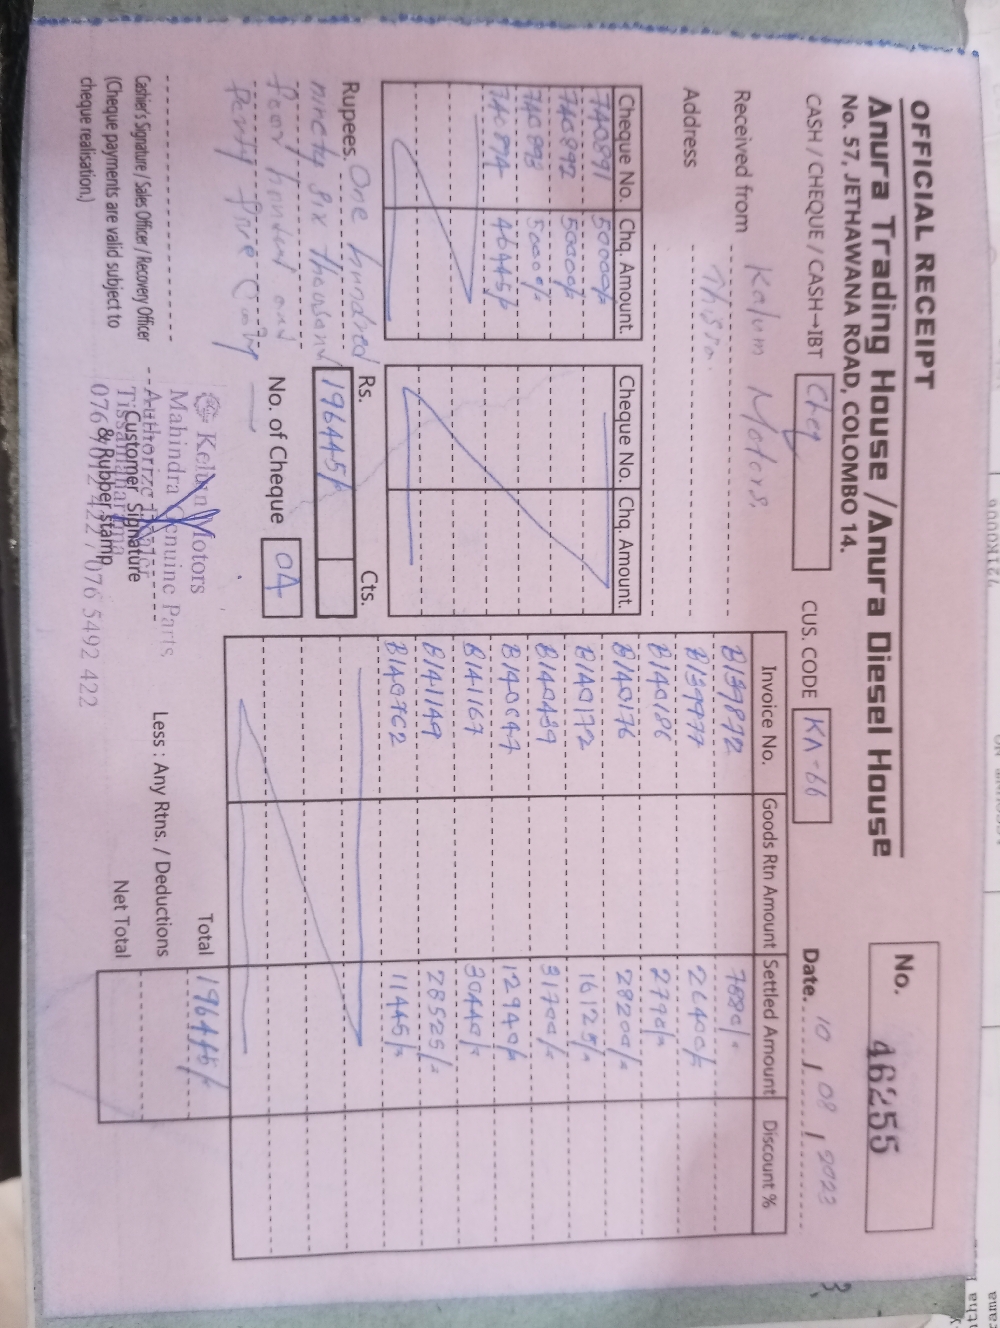 OFFICIAL RECEIPT
Anura Trading House / Anura Diesel House
No. 57, JETHAWANA ROAD, COLOMBO 14.
No. 46255
CASH / CHEQUE / CASH→IBT Cheq
CUS. CODE KA-66
Date. 10 / 08 / 2023
Received from Kalum Motors,
Address Thissa.
Cheque No. Chq. Amount.
740891 50000/-
740892 50000/-
740893 50000/-
740894 46445/-
Cheque No. Chq. Amount.
Rupees. One hundred
ninety six thousand
four hundred and
forty five only
Rs. Cts.
196445/-
No. of Cheque 04
Invoice No. Goods Rtn Amount Settled Amount Discount %
B139872 7880/-
B139977 26400/-
B140186 2790/-
B140176 28200/-
B140172 16125/-
B140439 31700/-
B140647 12940/-
B141167 30440/-
B141149 28525/-
B140762 11445/-
Total 196445/-
Less : Any Rtns. / Deductions
Net Total
Cashier's Signature / Sales Officer / Recovery Officer
(Cheque payments are valid subject to
cheque realisation.)
Motors
Mahindra Genuine Parts,
Customer Signature
& Rubber stamp
076 5492 422